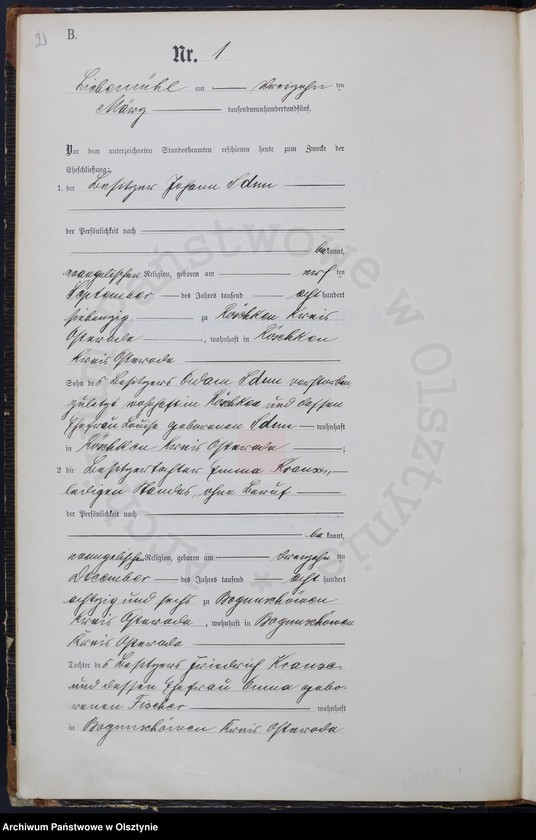 21
B.
Nr. 1
Liebemühl am dreizehn ten
März tausendneunhundertundfünf.
Vor dem unterzeichneten Standesbeamten erschienen heute zum Zwecke der
Eheschließung:
1. der Besitzer Johann Sdun
der Persönlichkeit nach
be kannt,
evangelischer Religion, geboren am ten
September des Jahres tausend acht hundert
siebenzig zu Röschken Kreis
Osterode, wohnhaft in Röschken
Kreis Osterode
Sohn des Besitzers Adam Sdun verstorben
zuletzt wohnhaft in Röschken und dessen
Ehefrau Louise geborenen Sdun wohnhaft
in Röschken Kreis Osterode;
2 die Besitzertochter Emma Krause,
ledigen Standes, ohne Beruf
der Persönlichkeit nach
be kannt,
evangelischer Religion, geboren am dreizehn ten
December des Jahres tausend acht hundert
achtzig und sechs zu Bogunschöwen
Kreis Osterode, wohnhaft in Bogunschöwen
Kreis Osterode
Tochter des Besitzers Friedrich Krause
und dessen Ehefrau Anna gebo-
renen Fischer wohnhaft
in Bogunschöwen Kreis Osterode
Archiwum Państwowe w Olsztynie
Archiwum Państwowe w Olsztynie